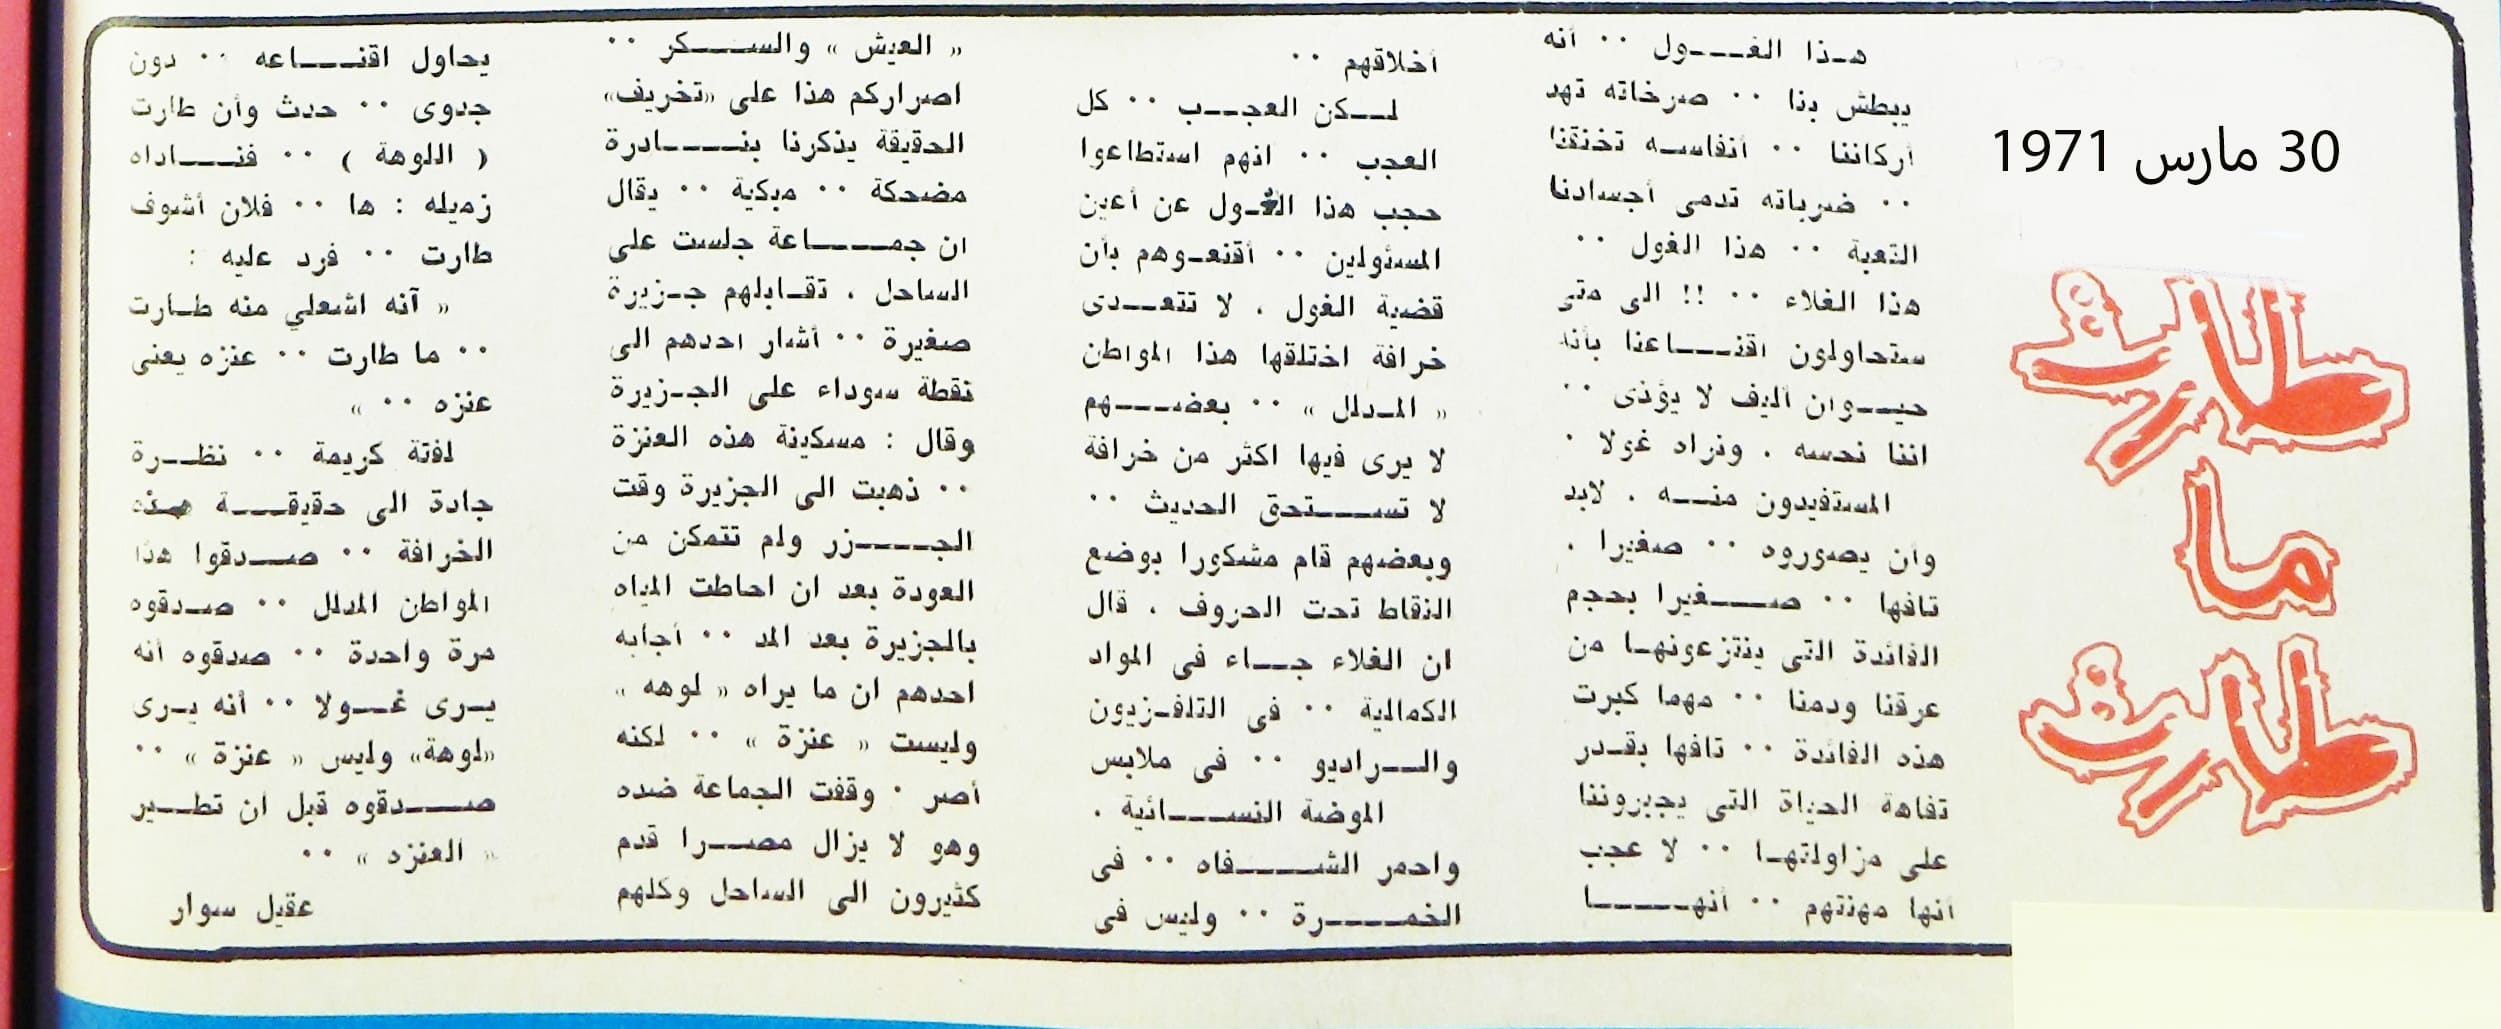 30 مارس 1971
طارت
ما
طارت
هذا الغول ٠٠ أنه
يبطش بنا ٠٠ صرخاته تهد
أركاننا ٠٠ أنفاسه تخنقنا
٠٠ ضرباته تدمى أجسادنا
التعبة ٠٠ هذا الغول ٠٠
هذا الغلاء ٠٠ !! الى متى
ستحاولون اقناعنا بأنه
حيوان أليف لا يؤذى ٠٠
اننا نحسه ، ونراه غولا ٠
المستفيدون منه ، لابد
وأن يصوروه ٠٠ صغيرا ،
تافها ٠٠ صغيرا بحجم
الفائدة التى ينتزعونها من
عرقنا ودمنا ٠٠ مهما كبرت
هذه الفائدة ٠٠ تافها بقدر
تفاهة الحياة التى يجبروننا
على مزاولتها ٠٠ لا عجب
أنها مهنتهم ٠٠ أنها
أخلاقهم ٠٠
لكن العجب ٠٠ كل
العجب ٠٠ انهم استطاعوا
حجب هذا الغول عن أعين
المسئولين ٠٠ أقنعوهم بأن
قضية الغول ، لا تتعدى
خرافة اختلقها هذا المواطن
« المدلل » ٠٠ بعضهم
لا يرى فيها اكثر من خرافة
لا تستحق الحديث ٠٠
وبعضهم قام مشكورا بوضع
النقاط تحت الحروف ، قال
ان الغلاء جاء فى المواد
الكمالية ٠٠ فى التلفزيون
والراديو ٠٠ فى ملابس
الموضة النسائية ،
واحمر الشفاه ٠٠ فى
الخمرة ٠٠ وليس فى
« العيش » والسكر ٠٠
اصراركم هذا على «تخريف»
الحقيقة يذكرنا بنادرة
مضحكة ٠٠ مبكية ٠٠ يقال
ان جماعة جلست على
الساحل ، تقابلهم جزيرة
صغيرة ٠٠ أشار احدهم الى
نقطة سوداء على الجزيرة
وقال : مسكينة هذه العنزة
٠٠ ذهبت الى الجزيرة وقت
الجزر ولم تتمكن من
العودة بعد ان احاطت المياه
بالجزيرة بعد المد ٠٠ أجابه
احدهم ان ما يراه « لوهه »
وليست « عنزة » ٠٠ لكنه
أصر ٠ وقفت الجماعة ضده
وهو لا يزال مصرا قدم
كثيرون الى الساحل وكلهم
يحاول اقناعه ٠٠ دون
جدوى ٠٠ حدث وأن طارت
( اللوهة ) ٠٠ فناداه
زميله : ها ٠٠ فلان أشوف
طارت ٠٠ فرد عليه :
« آنه اشعلي منه طارت
٠٠ ما طارت ٠٠ عنزه يعنى
عنزه ٠٠ »
لفتة كريمة ٠٠ نظرة
جادة الى حقيقة هذه
الخرافة ٠٠ صدقوا هذا
المواطن المدلل ٠٠ صدقوه
مرة واحدة ٠٠ صدقوه أنه
يرى غولا ٠٠ أنه يرى
«لوهة» وليس « عنزة » ٠٠
صدقوه قبل ان تطير
« العنزه » ٠٠
عقيل سوار